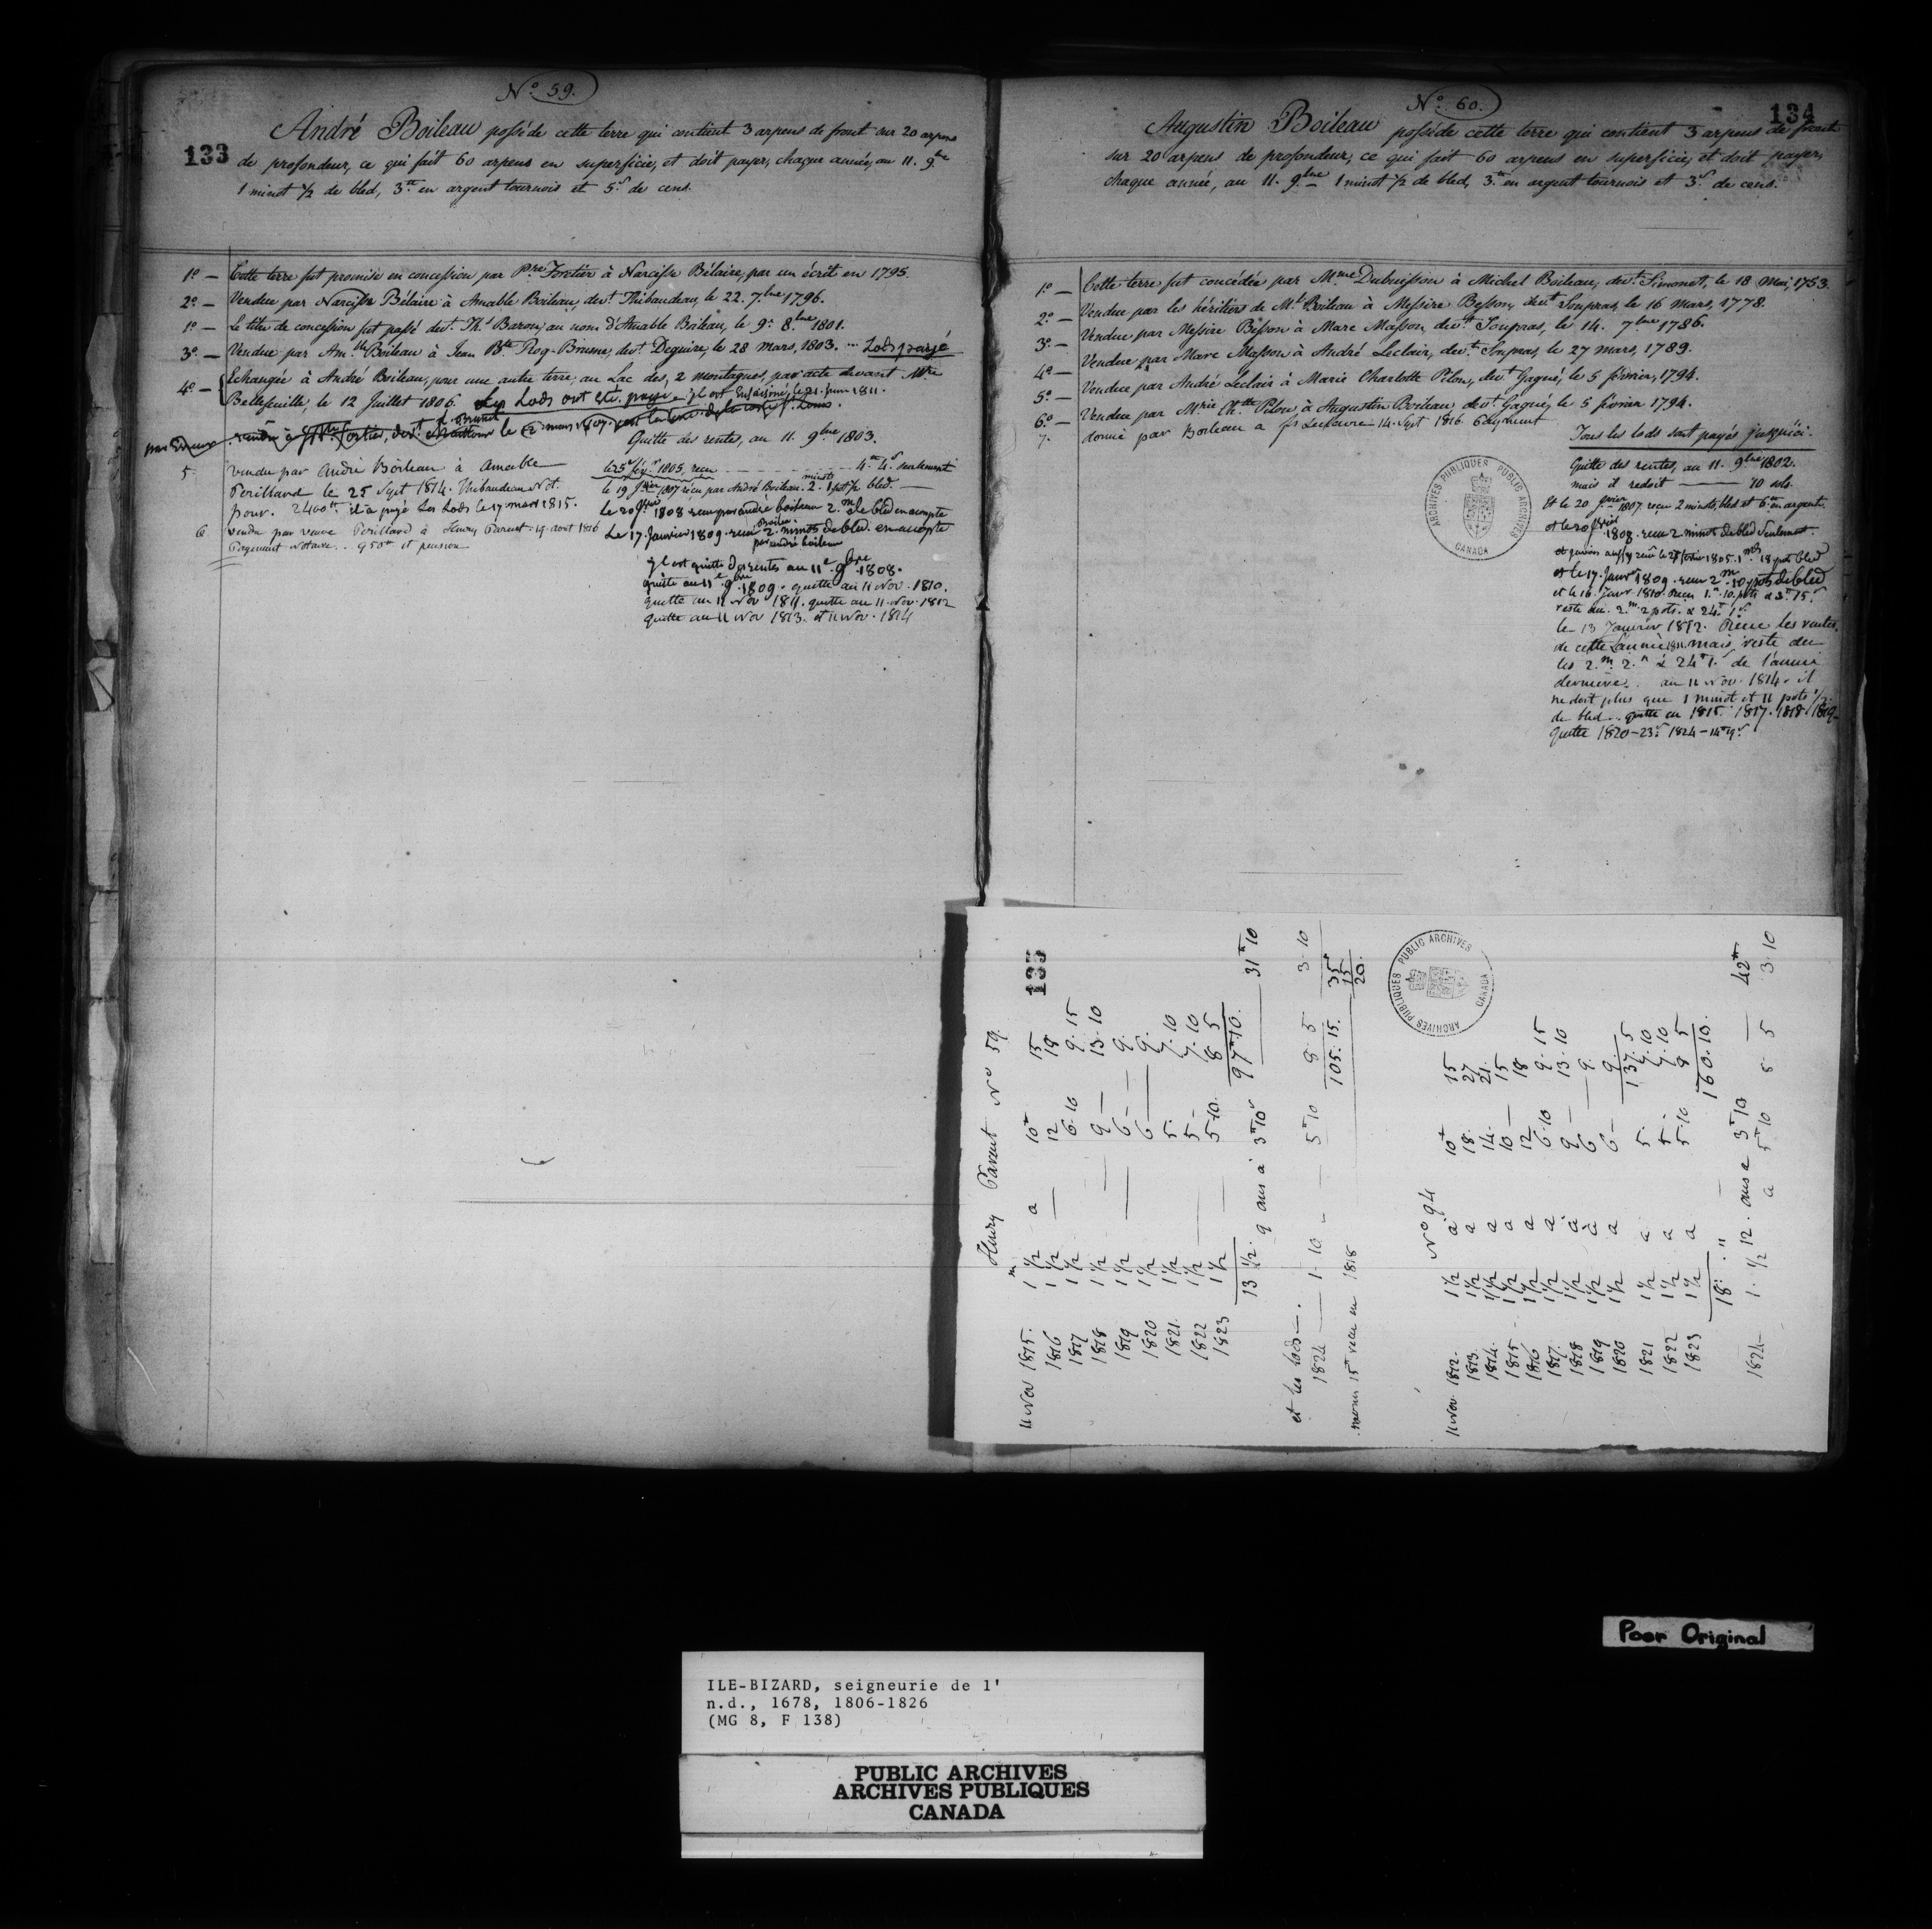 No. 59.
133
André Boileau possède cette terre qui contient 3 arpens de front sur 20 arpens
de profondeur, ce qui fait 60 arpens en superficie, et doit payer, chaque année, au 11. 9.bre
1 minot 1/2 de bled, 3.tt en argent tournois et 5.s de cens.
1o — Cette terre fut promise en concession par Pre Fortier à Narcisse Bélaire, par un écrit en 1795.
2o — Vendue par Narcisse Bélaire à Amable Boileau, devt. Thibaudeau, le 22. 7.bre 1796.
1o — Le titre de concession fut passé devt. Ths Baron, au nom d'Amable Boileau, le 9. 8.bre 1801.
3o — Vendue par Am.ble Boileau à Jean Bte Roq-Brune, devt. Deguire, le 28 mars, 1803. ... Lods payé
4o — Echangée à André Boileau, pour une autre terre, au Lac des, 2 montagnes, par acte devant Mtre
Bellefeuille, le 12 Juillet 1806. Les Lods ont été payé - il est Ensaisiné, le 21. Juin 1811
par Erreur
le 2 mars 1807
Quitte des rentes, au 11. 9.bre 1803.
5. vendu par André Boileau à Amable
Perillard le 25 Sept 1814. Thibaudeau Not.
pour 2400tt il a payé Les Lods le 17 mars 1815.
6 vendu par veuve Perillard à Henry Parent 19 aout 1816
Payement Notaire .. 950tt et pension
le 25 1805, recu 4.tt 4.s seulement
le 19 Jvier 1807 récu par André Boileau. 2 minots 1 pot 1/2 bled.
le 20 Jvier 1808 recu par andré boileau 2.m de bled en acompte
Le 17 Janvier 1809. recu 2 minots de bled en acompte
par andré boileau
il est quitte des rentes au 11e 9bre 1808.
quitte au 11e 9bre 1809. quitte au 11 Nov. 1810.
quitte au 11 Nov 1811. quitte au 11 Nov. 1812
quitte au 11 Nov 1813. et 11 Nov. 1814
No. 60.
134
Augustin Boileau possède cette terre qui contient 3 arpens de front
sur 20 arpens de profondeur, ce qui fait 60 arpens en superficie, et doit payer,
chaque année, au 11. 9.bre 1 minot 1/2 de bled, 3.tt en argent tournois et 3.s de cens.
1o — Cette terre fut concédée par Mme Dubuisson à Michel Boileau, devt. Simonet, le 18 Mai, 1753.
2o — Vendue par les héritiers de Ml Boileau à Messire Besson, devt Soupras, le 16 Mars, 1778.
3o — Vendue par Messire Besson à Marc Masson, devt Soupras, le 14. 7bre 1786.
4o — Vendue par Marc Masson à André Leclair, devt. Soupras, le 27 mars, 1789.
5o — Vendue par André Leclair à Marie Charlotte Pilon, devt Gagné, le 5 février, 1794.
6o — Vendue par Mrie Chtte Pilon à Augustin Boileau devt. Gagné, le 5 février 1794.
7. donné par Boileau a fs Lefebvre 14. Sept 1816 Payment
Tous les lods sont payés jusqu'ici.
Quitte des rentes, au 11. 9bre 1802.
mais il redoit — 10 sols.
Et le 20 Jvier 1807 recu 2 minots, bled et 6tt en argent
et le 20 Jvier 1808. recu 2 minot de bled seulement.
et le 17. Janvr 1809. recu 2m 10 pots de bled
et le 16 Janvr 1810. recu 1.m 10. pots & 3tt 15s
reste du. 2.m 2 pots. & 24tt 1s
le 13 Janvier 1812. Récue les rentes
de cette L'année 1811. mais reste du
les 2.m 2.p & 24tt 1.s de l'année
dernière. au 11 Nov. 1814. il
ne doit plus que 1 minot et 11 pots 1/2
de bled .. quitte en 1815. 1817. 1818. 1819
quitte 1820 - 23. 1824 - 14tt 9s
ARCHIVES PUBLIQUES PUBLIC ARCHIVES
CANADA
135
Henry Parent No 59
11 Nov 1815. 1m 1/2 a 10tt 15
1816 1 1/2 — 12 18
1817 1 1/2 6.10 9.15
1818 1 1/2 — 9 — 13.10
1819 1 1/2 — 6 — 9.
1820 1 1/2 6 — 9.
1821. 1 1/2 5. 7.10
1822 1 1/2 — 5 — 7.10
1823 1 1/2 — 5.10. 8 5
13 1/2 97tt.10.
9 ans à 3tt 10s — 31tt 10
et les lods —.
1824 — 1.10 — 5tt 10 8.5 3.10
105.15. 35tt
15
20.
moins 15tt recu en 1818
No 94
11 Nov. 1812. 1 1/2 a 10tt 15
1813. 1 1/2 a 18 27
1814. 1 1/2 a 14. 21.
1815 1 1/2 a 10 — 15
1816 1 1/2 a 12 18
1817. 1 1/2 a 6.10 9.15
1818 1 1/2 a 9 — 13.10
1819 1 1/2 a 6 — 9.
1820 1 1/2 a 6 — 9.
137.5
1821 1 1/2 a 5. 7.10
1822 1 1/2 a 5 - 7.10
1823 1 1/2 a 5.10 8 5
18. " — 160.10.
12. ans a 3tt 10 — 42tt
1824 — 1. 1/2 a 5tt 10 8 5 3.10
ARCHIVES PUBLIQUES PUBLIC ARCHIVES
CANADA
Poor Original
ILE-BIZARD, seigneurie de l'
n.d., 1678, 1806-1826
(MG 8, F 138)
PUBLIC ARCHIVES
ARCHIVES PUBLIQUES
CANADA